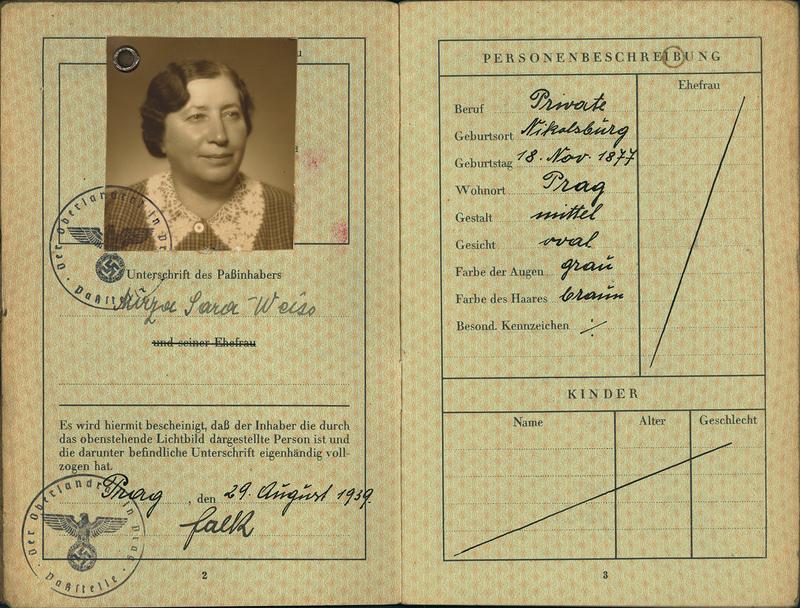 Unterschrift des Paßinhabers
Sara Weiss
und seiner Ehefrau
Es wird hiermit bescheinigt, daß der Inhaber die durch
das obenstehende Lichtbild dargestellte Person ist und
die darunter befindliche Unterschrift eigenhändig voll-
zogen hat.
Prag, den 29. August 1939.
Falk
Der Oberlandrat in Prag
Paßstelle
2
PERSONENBESCHREIBUNG
Ehefrau
Beruf Private
Geburtsort Nikolsburg
Geburtstag 18. Nov. 1877
Wohnort Prag
Gestalt mittel
Gesicht oval
Farbe der Augen grau
Farbe des Haares braun
Besond. Kennzeichen ·/·
KINDER
Name Alter Geschlecht
3